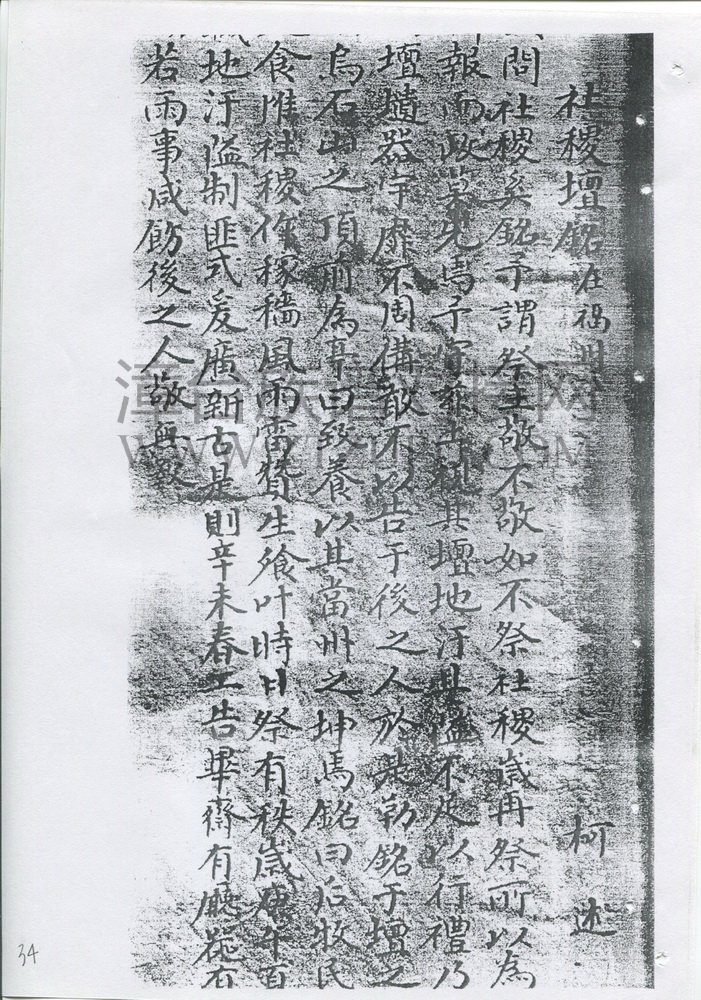 社稷壇銘在福州
柯述
問社稷奚銘予謂祭主敬不敬如不祭社稷歲再祭所以為
報而政莫先焉予守茲土視其壇地汙且隘不足以行禮乃
壇壝器宇靡不周備敢不以告于後之人於是勒銘于壇之
烏石山之頂前為亭曰致養以其當州之坤焉銘曰后牧民
食惟社稷作稼穡風雨雷贊生殖叶時日祭有秩歲庚午百
地汙隘制匪式爰廣新古是則辛未春工告畢齋有廳器有
若雨事咸飭後之人敬無斁
漳台族譜對接网
34